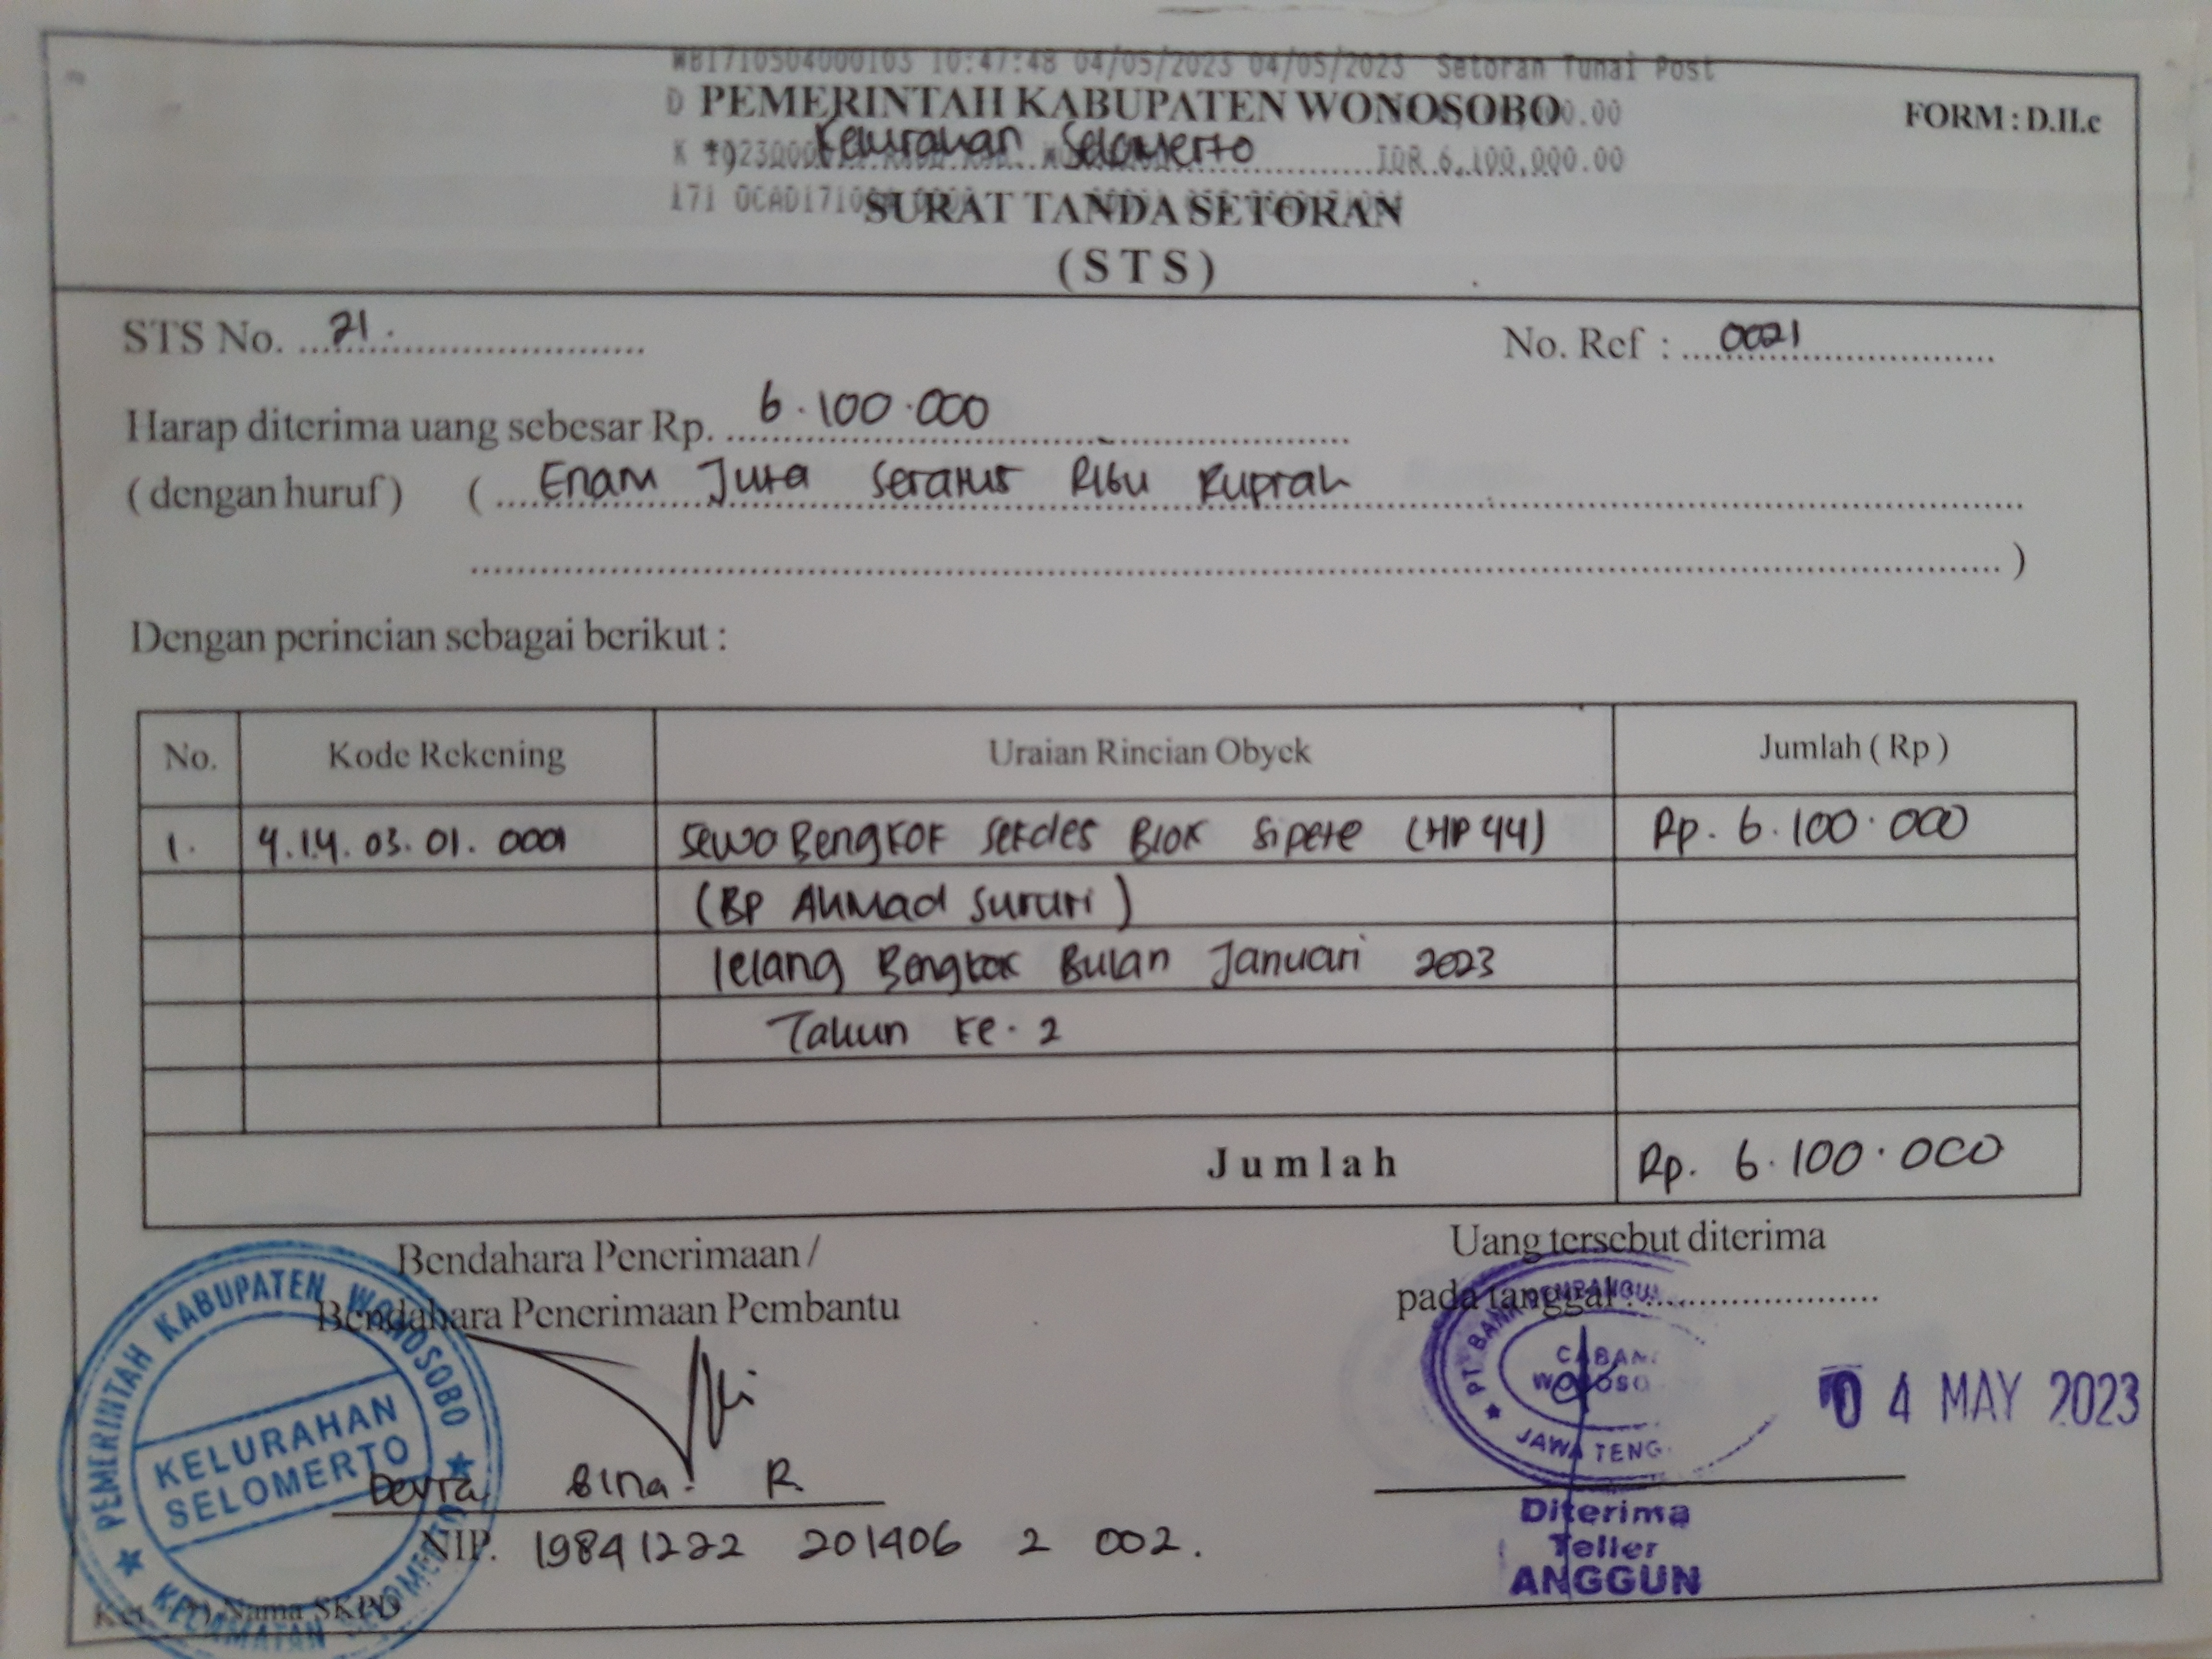 WB1710504000103 10:47:48 04/05/2023 04/05/2023 Setoran Tunai Post
D
PEMERINTAH KABUPATEN WONOSOBO
FORM : D.II.c
K *) Kelurahan Selomerto IDR 6,100,000.00
171
SURAT TANDA SETORAN
( S T S )
STS No. 21.
No. Ref : 0021
Harap diterima uang sebesar Rp. 6.100.000
( dengan huruf ) ( Enam Juta Seratus Ribu Rupiah
)
Dengan perincian sebagai berikut :
No. Kode Rekening Uraian Rincian Obyek Jumlah ( Rp )
1. 4.1.4. 03. 01. 0001 Sewa Bengkok Sekdes Blok Sipete (HP 44) Rp. 6.100.000
(BP Ahmad Sururi)
lelang Bengkok Bulan Januari 2023
Tahun ke. 2
Jumlah Rp. 6.100.000
Bendahara Penerimaan /
Bendahara Penerimaan Pembantu
Uang tersebut diterima
pada tanggal :
04 MAY 2023
PEMERINTAH KABUPATEN WONOSOBO
KELURAHAN
SELOMERTO
KECAMATAN SELOMERTO
Bina R.
NIP. 19841222 201406 2 002.
PT BANK
JAWA TENG
Diterima
Teller
ANGGUN
Ket : *) Nama SKPD